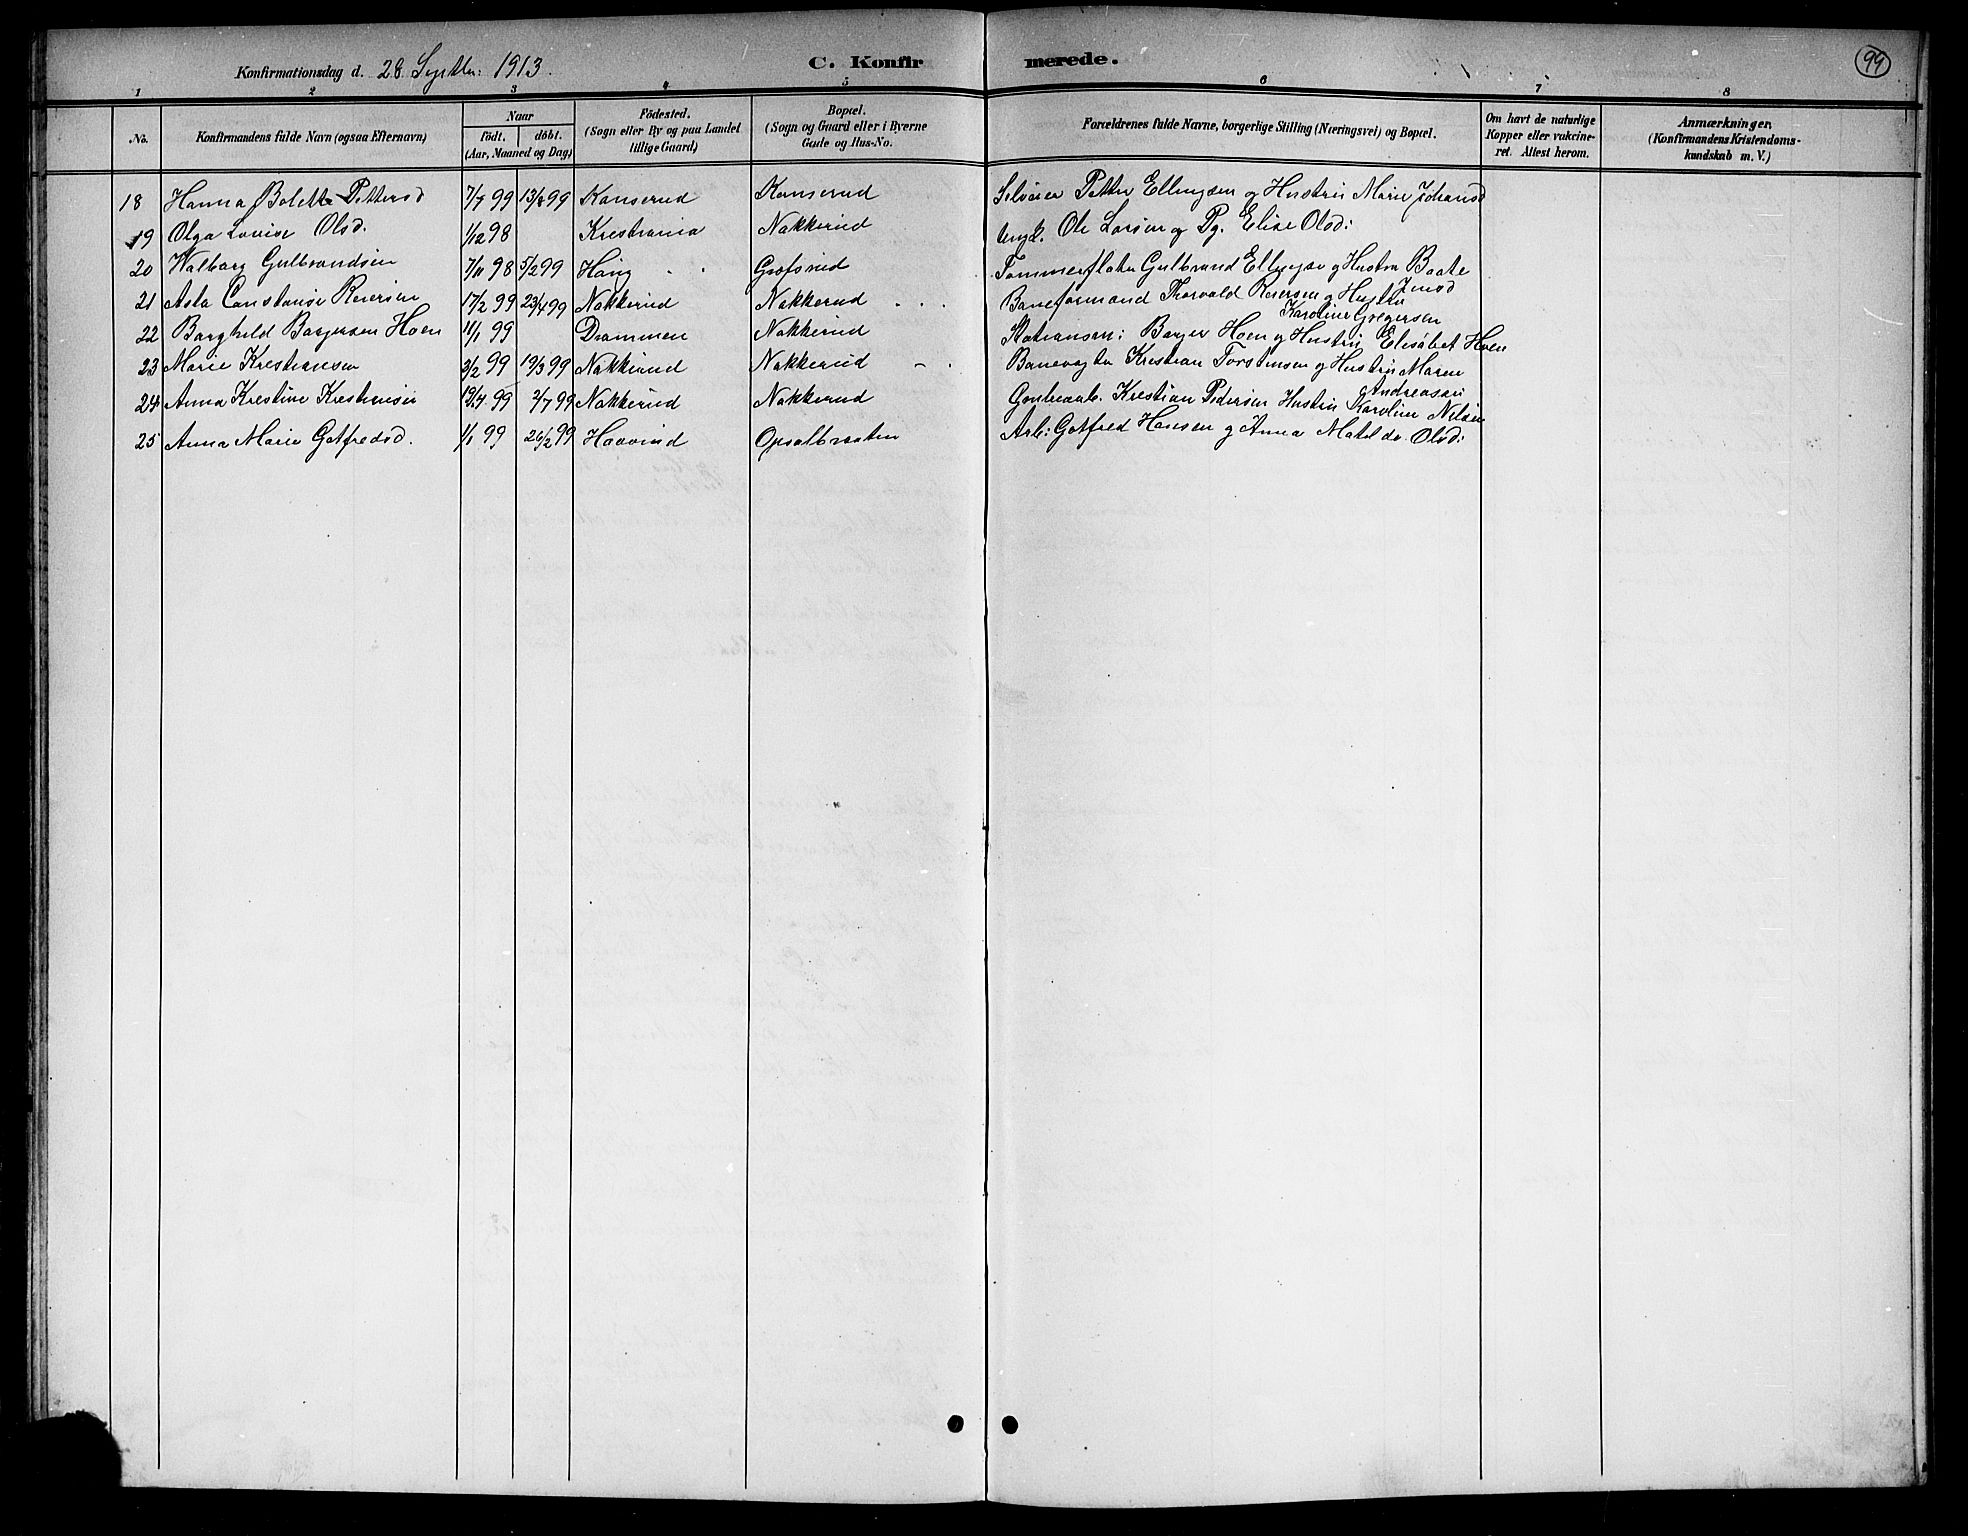 99
Konfirmationsdag d. 28 Septbr: 1913.
C. Konfirmerede.
1 2 3 4 5 6 7 8
No.
Konfirmandens fulde Navn (ogsaa Efternavn)
Naar
født. døbt.
(Aar, Maaned og Dag)
Fødested.
(Sogn eller By og paa Landet
tillige Gaard)
Bopæl.
(Sogn og Gaard eller i Byerne
Gade og Hus-No.
Forældrenes fulde Navne, borgerlige Stilling (Næringsvei) og Bopæl.
Om havt de naturlige
Kopper eller vakcine-
ret. Attest herom.
Anmærkninger,
(Konfirmandens Kristendoms-
kundskab m. V.)
18 Hanna Bolette Pettersd 7/7 99 13/8 99 Konserud Konserud Selveier Petter Ellingsen og Hustru Marie Johansd
19 Olga Lovise Olsd. 1/12 98 Krestiania Nakkerud Ungk. Ole Larsen og Pg. Elise Olsd:
20 Walborg Gulbrandsen 7/11 98 5/2 99 Haug Grøfsrud Tømmerfløter Gulbrand Ellingsen og Hustru Beate
21 Asta Constanse Reiersen 17/2 99 23/4 99 Nakkerud Nakkerud Baneformand Thorvald Reiersen og Hustru
Karoline Gregersen
22 Borghild Borgersen Hoen 11/1 99 Drammen Nakkerud Borger Hoen og Hustru Elisabet Hoen
23 Marie Krestiansen 2/2 99 19/3 99 Nakkerud Nakkerud Banevogter Krestian Torstensen og Hustru Maren
Andreassen
24 Anna Krestine Krestiansen 19/4 99 2/7 99 Nakkerud Nakkerud Krestian Pedersen Hustru Karoline Nilsen
25 Anna Marie Gotfredsd. 1/1 99 26/2 99 Haavind Opsalbraaten Arb: Gotfred Hansen og Anna Matilde Olsd: